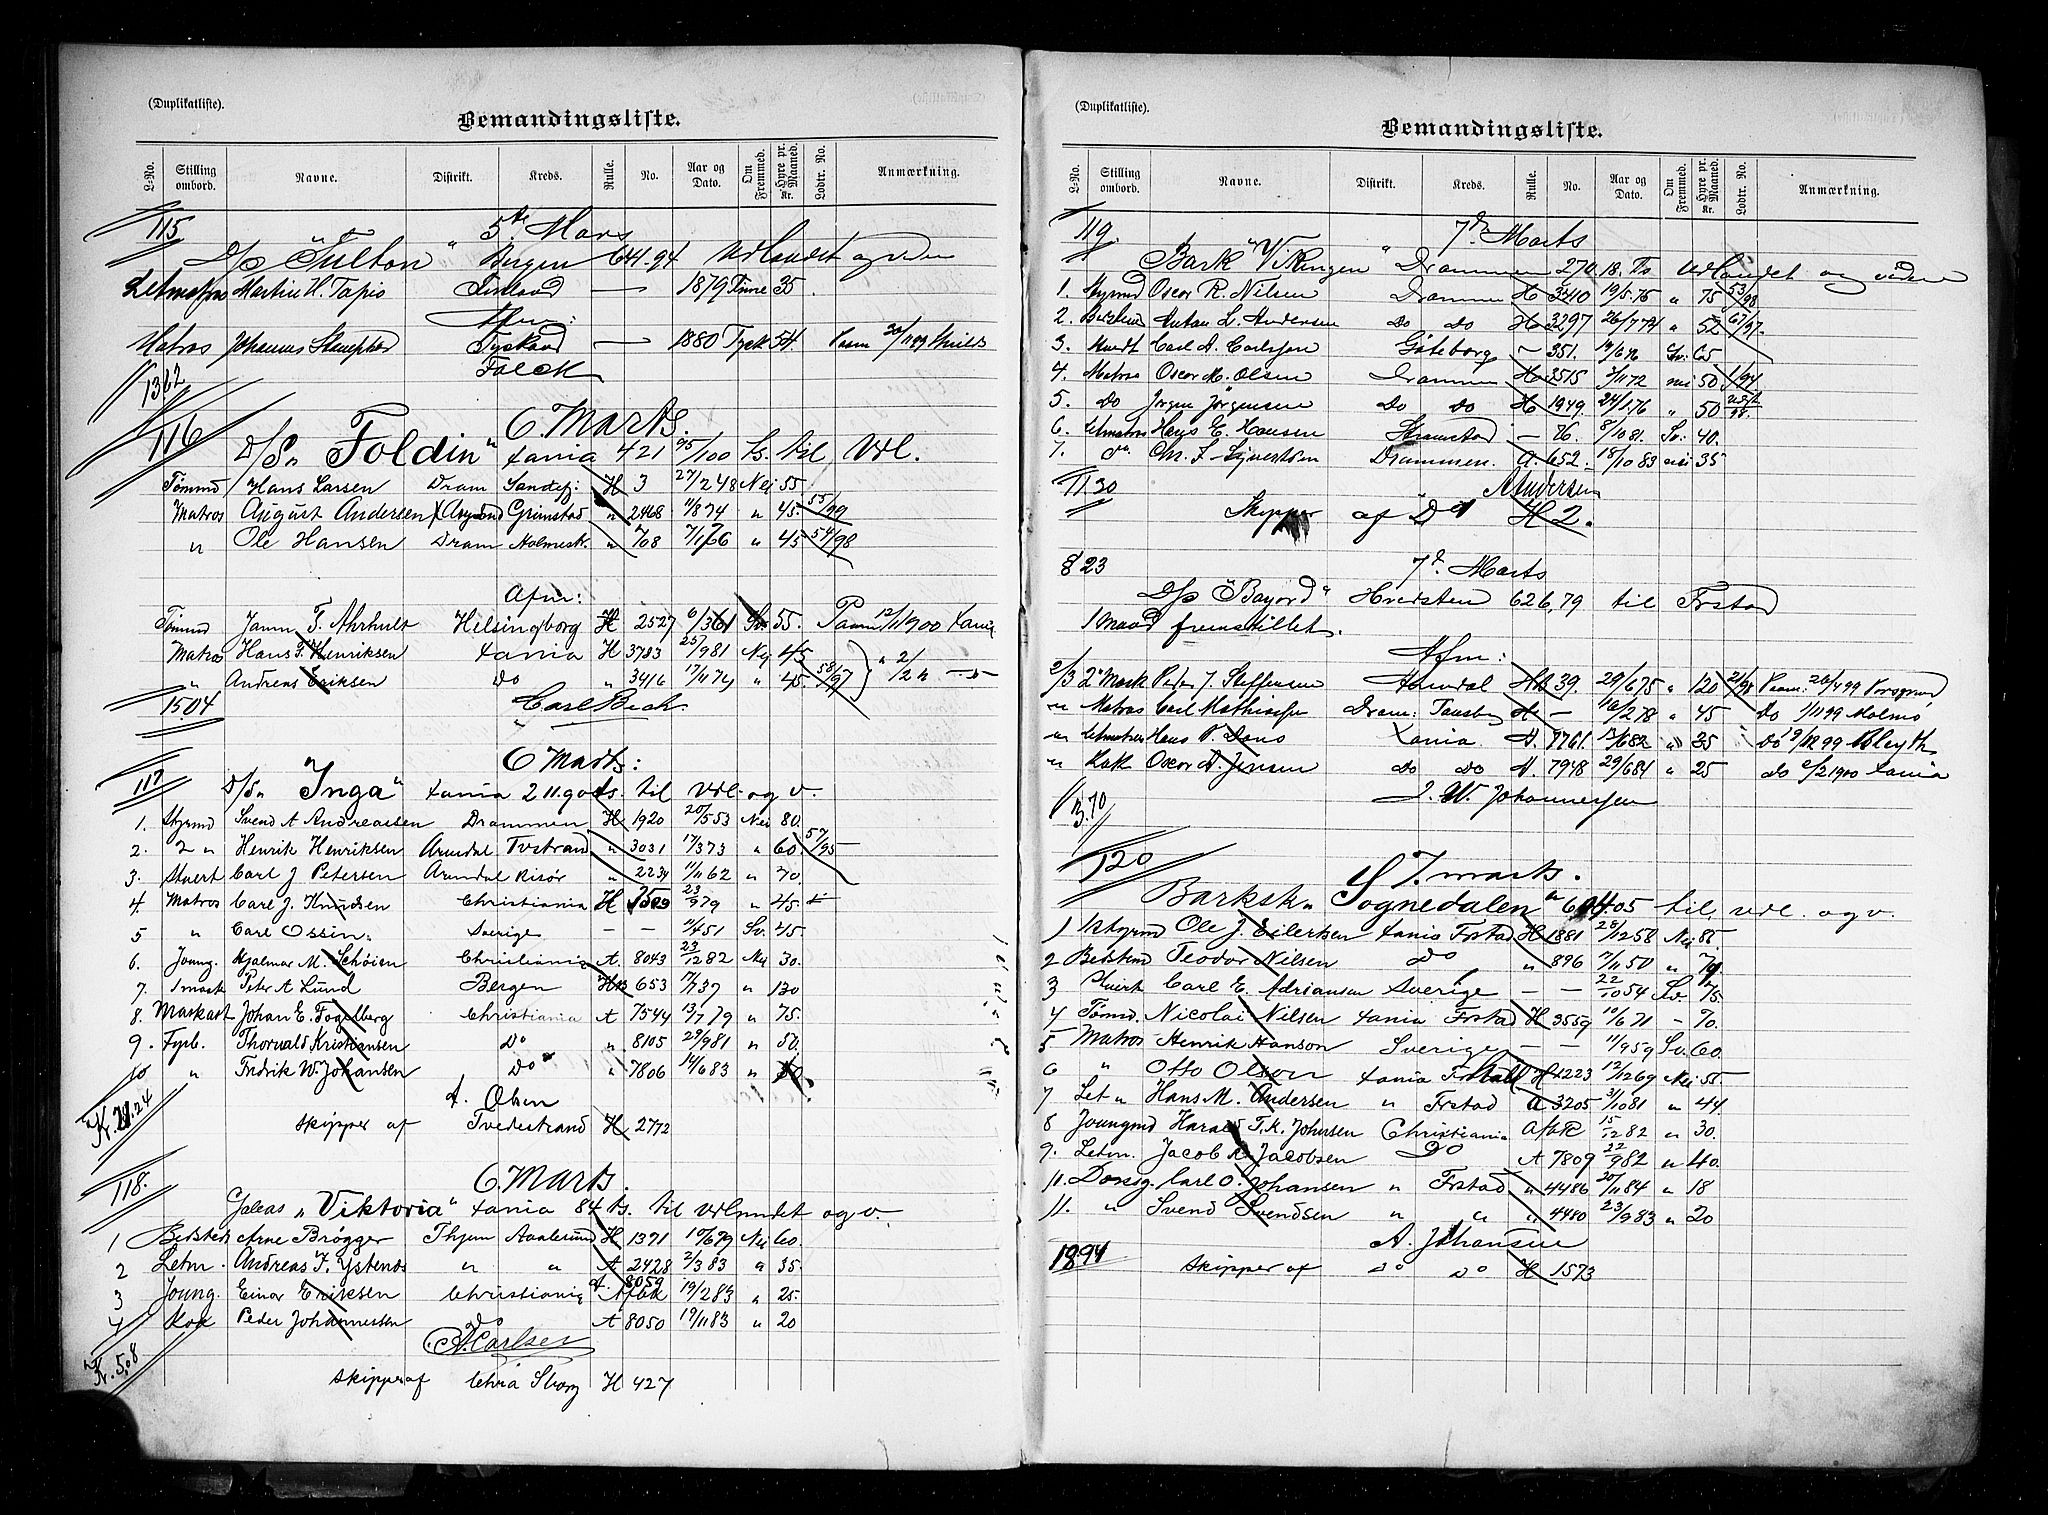 (Duplikatliste).
Bemandingsliste.
L-No. Stilling ombord. Navne. Distrikt. Kreds. Rulle. No. Aar og Dato. Om Fremmed. Hyre pr. Maaned. Kr. Lodtr. No. Anmærkning.
115 5te Mars
D/s "Fulton" Bergen 644.94 Udlandet og
Letmatros Martin H. Tapio Finland — 1879 Finne 35
Afm:
Matros Johannes Tyskland — 1880 Tysk 54.
Falck
1362
116 6 Marts.
D/S "Foldin" Xania 421 95/100 Ts. til Udl.
Tømmd Hans Larsen Dram Sandefj: H 3 27/2 48 Nei 55
Matros August Andersen Grimstad " 2468 11/8 74 " 45. 55/99
" Ole Hansen Dram Holmest. " 708 7/1 66 " 45 54/98
Afm:
Tømmd T. Ahrhult Helsingborg H 2527 6/3 61 Sv. 55. Paam 12/1 1900 Xania
Matros Hans F. Henriksen Xania H 3783 25/9 81 Nej 45
" Andreas Eriksen Do " 3416 17/11 74 " 45. 58/97
1504 Carl Bech.
117 6 Marts:
D/S "Inga" Xania 211.90 ts. til Udl. og v.
1. Styrmd Svend A Andreassen Drammen H 1920 20/5 53 Nei 80.
2. 2 " Henrik Henriksen Arendal Tvstrand " 3031 17/3 73 " 60. 57/95
3. Stuert Carl J Petersen Arendal Risør " 2234 11/11 62 " 70.
4. Matros Carl J. Knudsen Christiania H 23/9 79 " 45.
5 " Carl Ossin. Sverige — — 11/4 51 Sv. 45
6. Joung. Hjalmar M. Schøien Christiania A. 8043 23/12 82 Nei 30.
7. 1 mask Peter A Lund Bergen 653 17/7 37 " 130
8. Maskast Johan E. Fogelberg Christiania A 7544 13/7 79 " 75.
9. Fyrb. Thorvald Kristiansen Do " 8105 29/9 81 " 50.
10 " Fredrik W. Johansen Do " 7806 14/6 83 "
A. Olsen
skipper af Tvedestrand H 2772
118. 6. Marts.
Galeas "Viktoria" Xania 84 ts. til Udlandet og v.
1 Bedstemd Arne Brøgger Thjem Aalesund H 1371 10/6 79 Nei 60.
2 Letm. Andreas F. Ystenes " " A 2428 2/3 83 " 35.
3 Joung. Einar Eriksen Christiania A. 8059 19/2 83 " 25.
4 Kok Peder Johannessen do A 8050 19/11 83 " 20
Carlsen
Kr. 5.08
skipper af Chria H 427
(Duplikatliste).
Bemandingsliste.
L-No. Stilling ombord. Navne. Distrikt. Kreds. Rulle. No. Aar og Dato. Om Fremmed. Hyre pr. Maaned. Kr. Lodtr. No. Anmærkning.
119. 7de Marts
Bark "Vikingen" Drammen 270.18. Ts Udlandet og videre
1. Styrmd Oscar R. Nilsen Drammen H 3540 19/5.75 " 75 53/98
2. Anton L. Andersen Do Do H 3297 " 52 67/97.
3. Carl A. Carlsson Göteborg — 351. Sv. 65
4. Matros Oscar M. Olsen Drammen H 3515 3/11 72 nei 50 1/94
5. Do Jørgen Jørgensen Do Do H 1949. 24/1.76 " 50
6. Letmatros E. Hansen Strømstad — 76. 8/10 81. Sv. 40.
7. do. Chr. F. Syvertsen Drammen. A. 652. 18/10 83 nei 35
1130 A Andersen
Skipper af Do H 2.
823 7d. Marts
D/s "Bayard" Hvidsten 626,79 til Frstad
1 Mand fremstillet.
Afm:
2/3 2den Mask Peder J. Steffensen Arendal 39. 29/6.75 " 120 21/98 Paam: 26/4 99 Porsgrund
" Matros Carl Mathisen Dram: Tønsberg H — 16/2 78 " 45 Do 1/11 99 Malmö
" Letmatros Hans P. Xania A. 8761. 13/6 82 " 35 Do 19/12 99 Blyth
" Kok Oscar A. Jensen Do Do A. 7948 29/6 84 " 25 Do 2/2 1900 Xania
J. W. Johannessen
3.70
120 7. marts.
Barksk. "Sognedalen" 604.05 til udl. og v.
1 1 styrmd Ole J. Eilertsen Xania Frstad H 1881 28/12 58 Nei 85
2 Bedstemd Teodor Nilsen Do " 896 11/11 50 " 70.
3 Stuert Carl E. Adriansen Sverige — — 22/10 54 Sv. 75.
4 Tømmd. Nicolai Nilsen Xania Frstad H 3559 10/6 71 — 70.
5 Matros Henrik Hanson Sverige — — 11/9 59 Sv. 60.
6 " Otto Olsen Xania Frstad H 1223 12/12 69 Nei 55.
7 Let " Hans M. Andersen " Frstad A 3205 31/10 81 " 44
8 Joungmd Harald T. K. Johnsen Christiania Afbk 15/12 82 " 30.
9. Letm. Jacob A. Jacobsen Do A 7809 22/9 82 " 40.
10. Dorsg. Carl O. Johansen " Frstad " 4486 20/11 84 " 18
11. " Svend Svendsen " " " 4480 23/9 83 " 20
A. Johansen
1894 skipper af Do Do H 1573